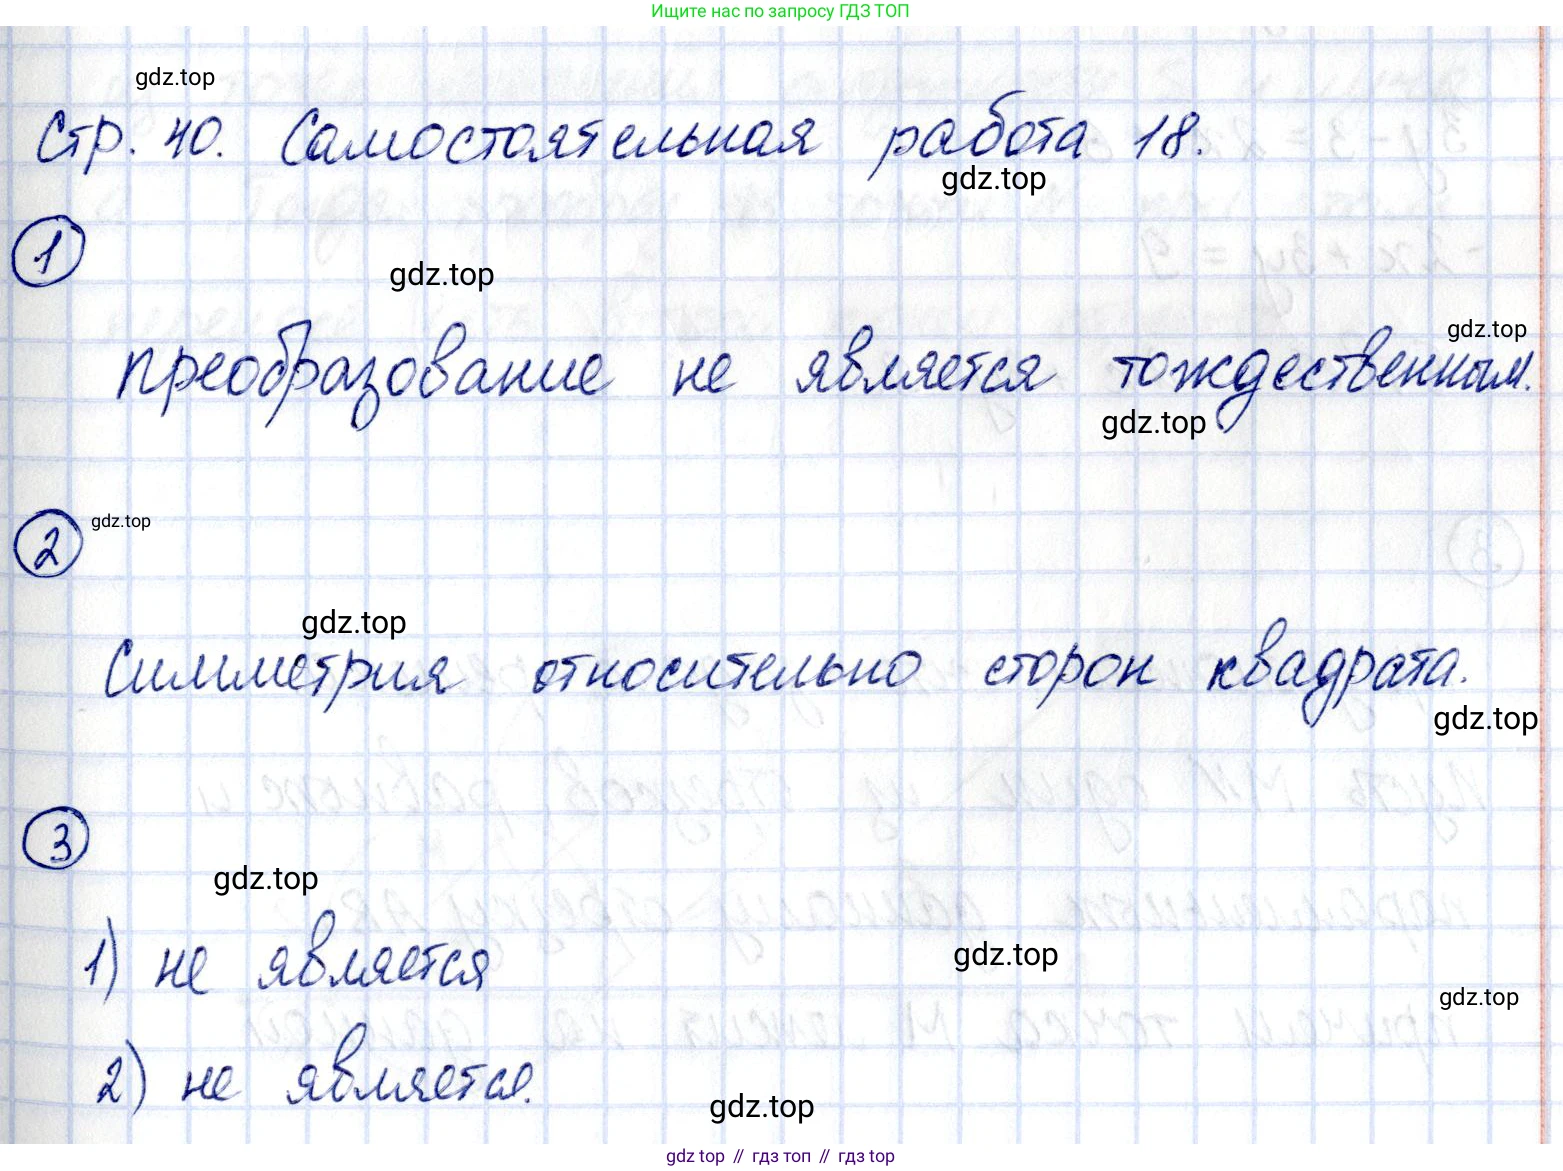 Ищите нас по запросу ГДЗ ТОП
gdz.top
Стр. 40. Самостоятельная работа 18.
gdz.top
1
gdz.top
gdz.top
преобразование не является тождественным.
gdz.top
2
gdz.top
gdz.top
Симметрия относительно сторон квадрата.
gdz.top
3
gdz.top
1) не является
gdz.top
gdz.top
2) не является.
gdz.top
gdz top // гдз топ // гдз top